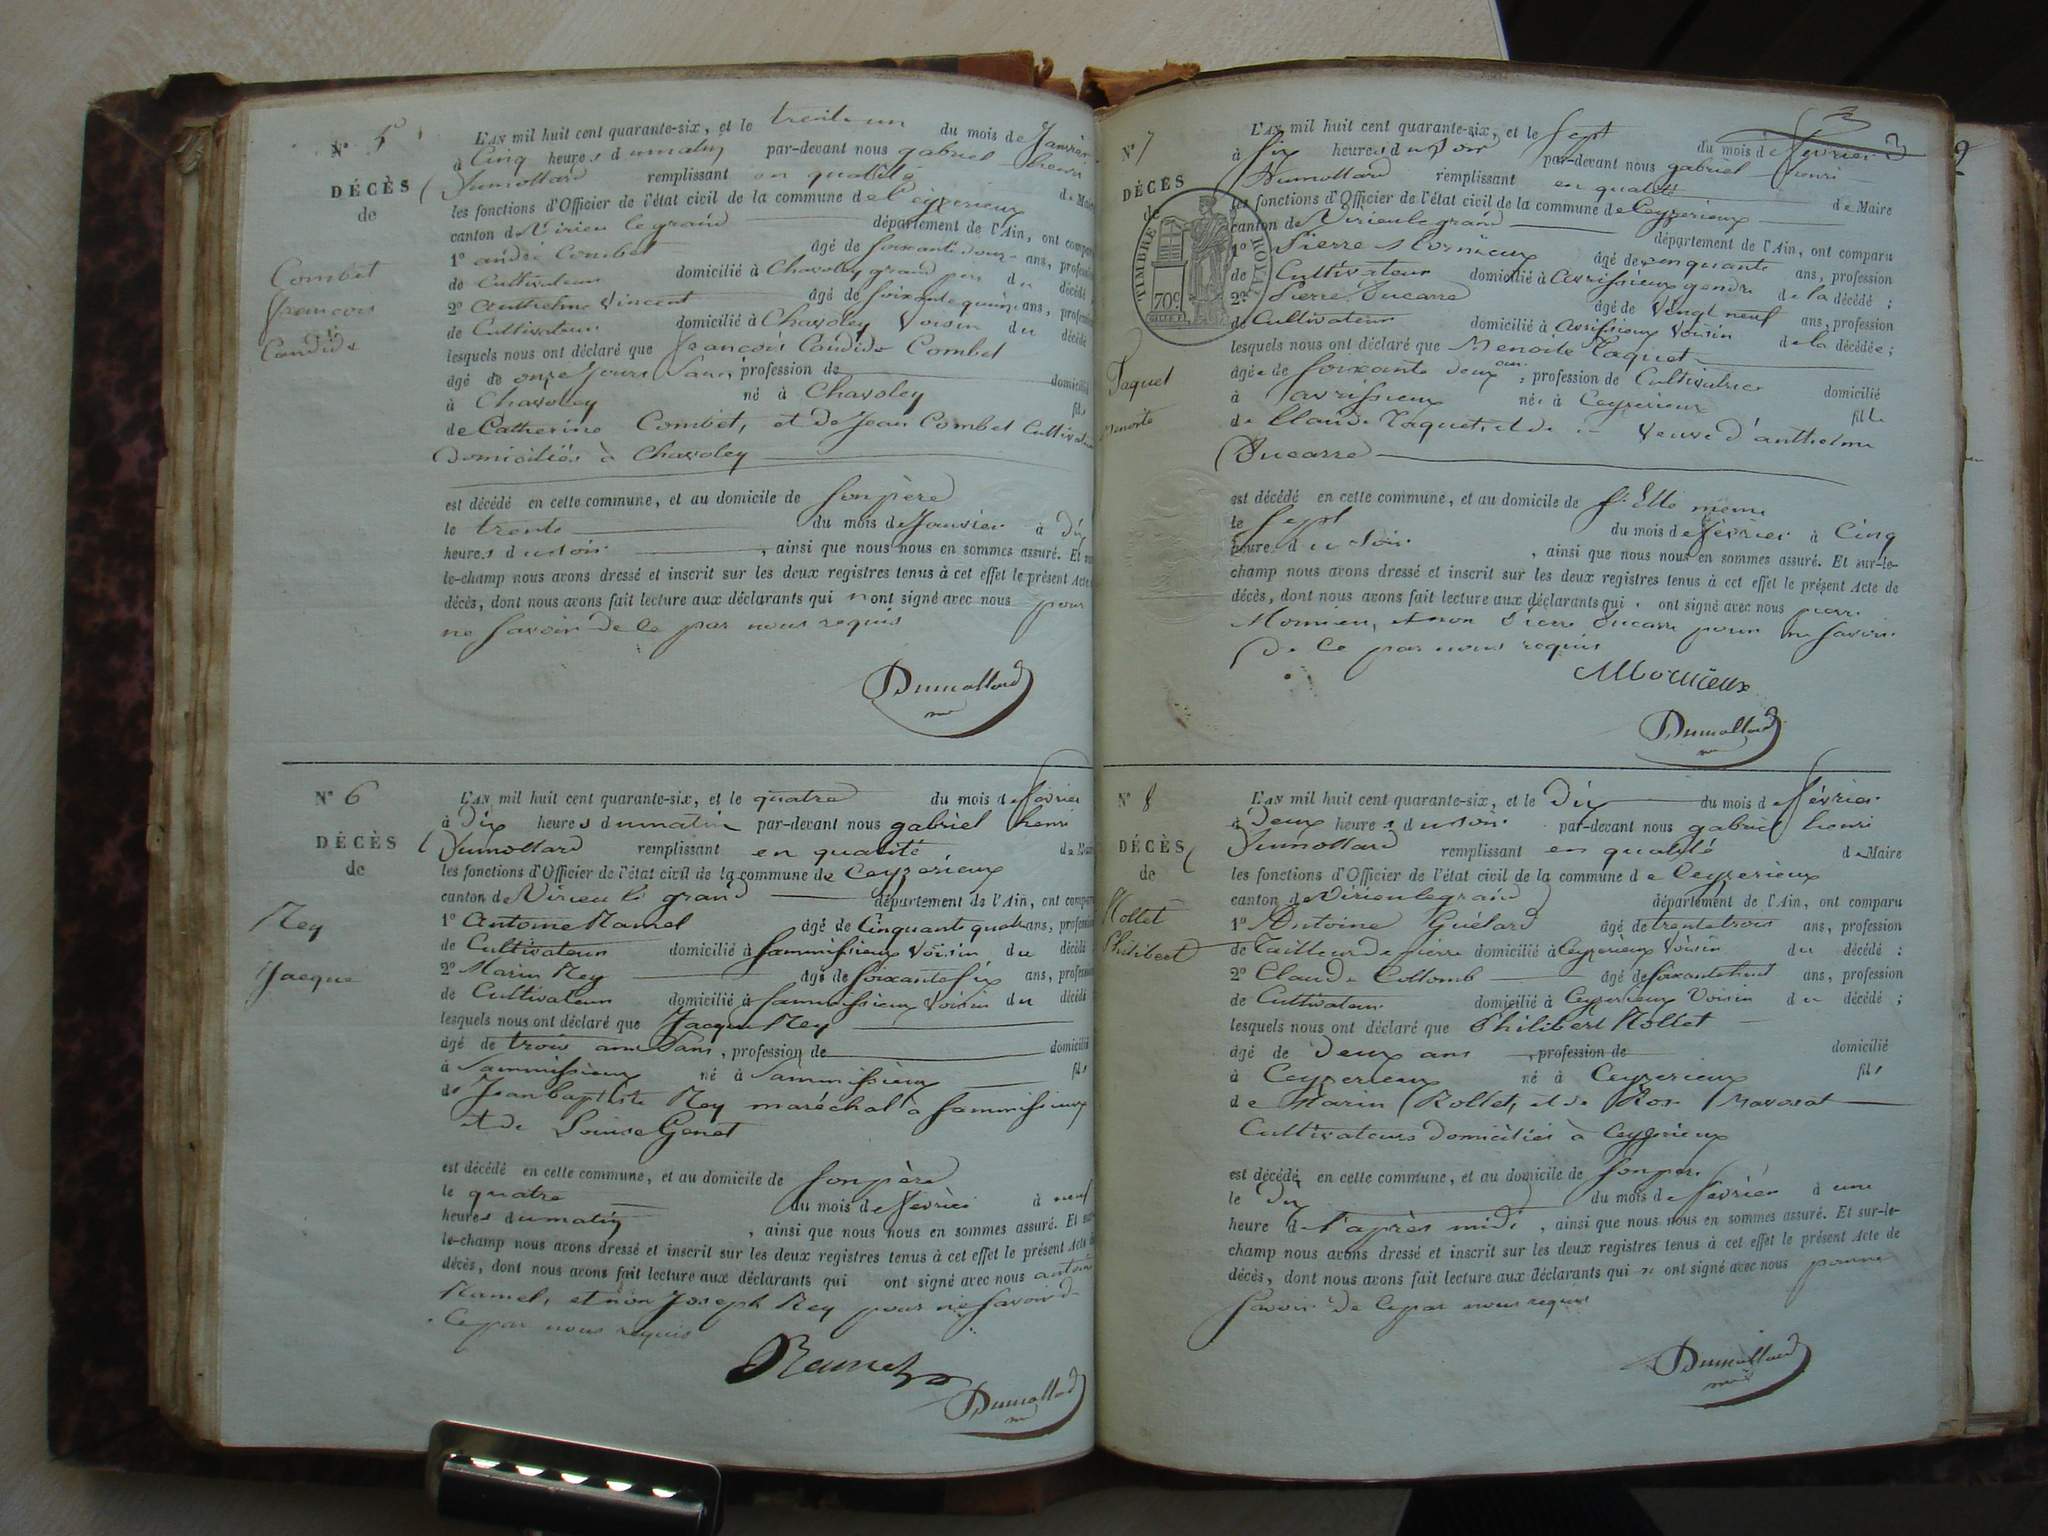 N° 5
L'AN mil huit cent quarante-six, et le trente un du mois de Janvier
à Cinq heures du matin par-devant nous gabriel henri
DÉCÈS
de
Dumollard remplissant en qualité de Maire
les fonctions d'Officier de l'état civil de la commune de Ceyzerieux
canton de Virieu le grand département de l'Ain, ont comparu
1° andré Combet âgé de soixante douze ans, profession
de Cultivateur domicilié à Chavoley grand père du décédé
2° anthelme Vincent âgé de soixante quinze ans, profession
de Cultivateur domicilié à Chavoley Voisin du décédé
Combet
François
Candide
lesquels nous ont déclaré que François Candide Combet
âgé de onze Jours Sans profession de domicilié
à Chavoley né à Chavoley fils
de Catherine Combet, et de Jean Combet Cultivateurs
Domiciliés à Chavoley
est décédé en cette commune, et au domicile de Son père
le trente du mois de Janvier à Dix
heures du soir, ainsi que nous nous en sommes assuré. Et sur-
le-champ nous avons dressé et inscrit sur les deux registres tenus à cet effet le présent Acte
décès, dont nous avons fait lecture aux déclarants qui n'ont signé avec nous pour
ne Savoir de Ce par nous requis
Dumollard
N° 6
L'AN mil huit cent quarante-six, et le quatre du mois de février
à Dix heures du matin par-devant nous gabriel henri
DÉCÈS
de
Dumollard remplissant en qualité de Maire
les fonctions d'Officier de l'état civil de la commune de Ceyzérieux
canton de Virieu le grand département de l'Ain, ont comparu
Rey
Jacque
1° Antoine Ramel âgé de Cinquante quatre ans, profession
de Cultivateur domicilié à Sammissieux Voisin du décédé
2° Marin Rey âgé de soixante six ans, profession
de Cultivateur domicilié à Sammissieux Voisin du décédé
lesquels nous ont déclaré que Jacque Rey
âgé de trois ans Sans, profession de domicilié
à Sammissieux né à Sammissieux fils
de Jean baptiste Rey maréchal à Sammissieux
et de Louise Genet
est décédé en cette commune, et au domicile de Son père
le quatre du mois de février à neuf
heures du matin, ainsi que nous nous en sommes assuré. Et sur-
le-champ nous avons dressé et inscrit sur les deux registres tenus à cet effet le présent Acte de
décès, dont nous avons fait lecture aux déclarants qui ont signé avec nous antoine
Ramel, et non Joseph Rey pour ne Savoir de
Ce par nous requis
Ramel
Dumollard
3
N° 7
L'AN mil huit cent quarante-six, et le Sept du mois de février
à Six heures du soir par-devant nous gabriel henri
DÉCÈS
de
Dumollard remplissant en qualité de Maire
les fonctions d'Officier de l'état civil de la commune de Ceyzerieux
canton de Virieu le grand département de l'Ain, ont comparu
TIMBRE ROYAL
70c
1° Pierre Mornieux âgé de cinquante ans, profession
de Cultivateur domicilié à Avrissieux gendre de la décédé ;
2° Pierre Ducarre âgé de Vingt neuf ans, profession
de Cultivateur domicilié à Avrissieux Voisin de la décédée ;
Taquet
Benoite
lesquels nous ont déclaré que Benoite Taquet
âgée de Soixante deux ans, profession de Cultivatrice domicilié
à avrissieux née à Ceyzerieux fille
de Claude Taquet, et de .. Veuve d'anthelme
Ducarre
est décédé en cette commune, et au domicile de d'Elle même
le Sept du mois de février à Cinq
heures du Soir, ainsi que nous nous en sommes assuré. Et sur-le-
champ nous avons dressé et inscrit sur les deux registres tenus à cet effet le présent Acte de
décès, dont nous avons fait lecture aux déclarants qui ont signé avec nous pierre
Mornieu, et non Pierre Ducarre pour ne Savoir
De Ce par nous requis
Mornieux
Dumollard
N° 8
L'AN mil huit cent quarante-six, et le Dix du mois de février
à Deux heures du soir par-devant nous gabriel henri
DÉCÈS
de
Dumollard remplissant en qualité de Maire
les fonctions d'Officier de l'état civil de la commune de Ceyzerieux
canton de Virieu le grand département de l'Ain, ont comparu
Rollet
Philibert
1° Antoine Guélard âgé de trente trois ans, profession
de Tailleur de pierre domicilié à Ceyzerieux Voisin du décédé :
2° Claude Collomb âgé de soixante huit ans, profession
de Cultivateur domicilié à Ceyzerieux Voisin du décédé ;
lesquels nous ont déclaré que Philibert Rollet
âgé de Deux ans, profession de domicilié
à Ceyzerieux né à Ceyzerieux fils
de Marin Rollet, et de Rose
Cultivateurs domiciliés à Ceyzerieux
est décédé en cette commune, et au domicile de Son père
le Dix du mois de février à une
heure de l'après midi, ainsi que nous nous en sommes assuré. Et sur-le-
champ nous avons dressé et inscrit sur les deux registres tenus à cet effet le présent Acte de
décès, dont nous avons fait lecture aux déclarants qui n'ont signé avec nous pour ne
Savoir de Ce par nous requis
Dumollard